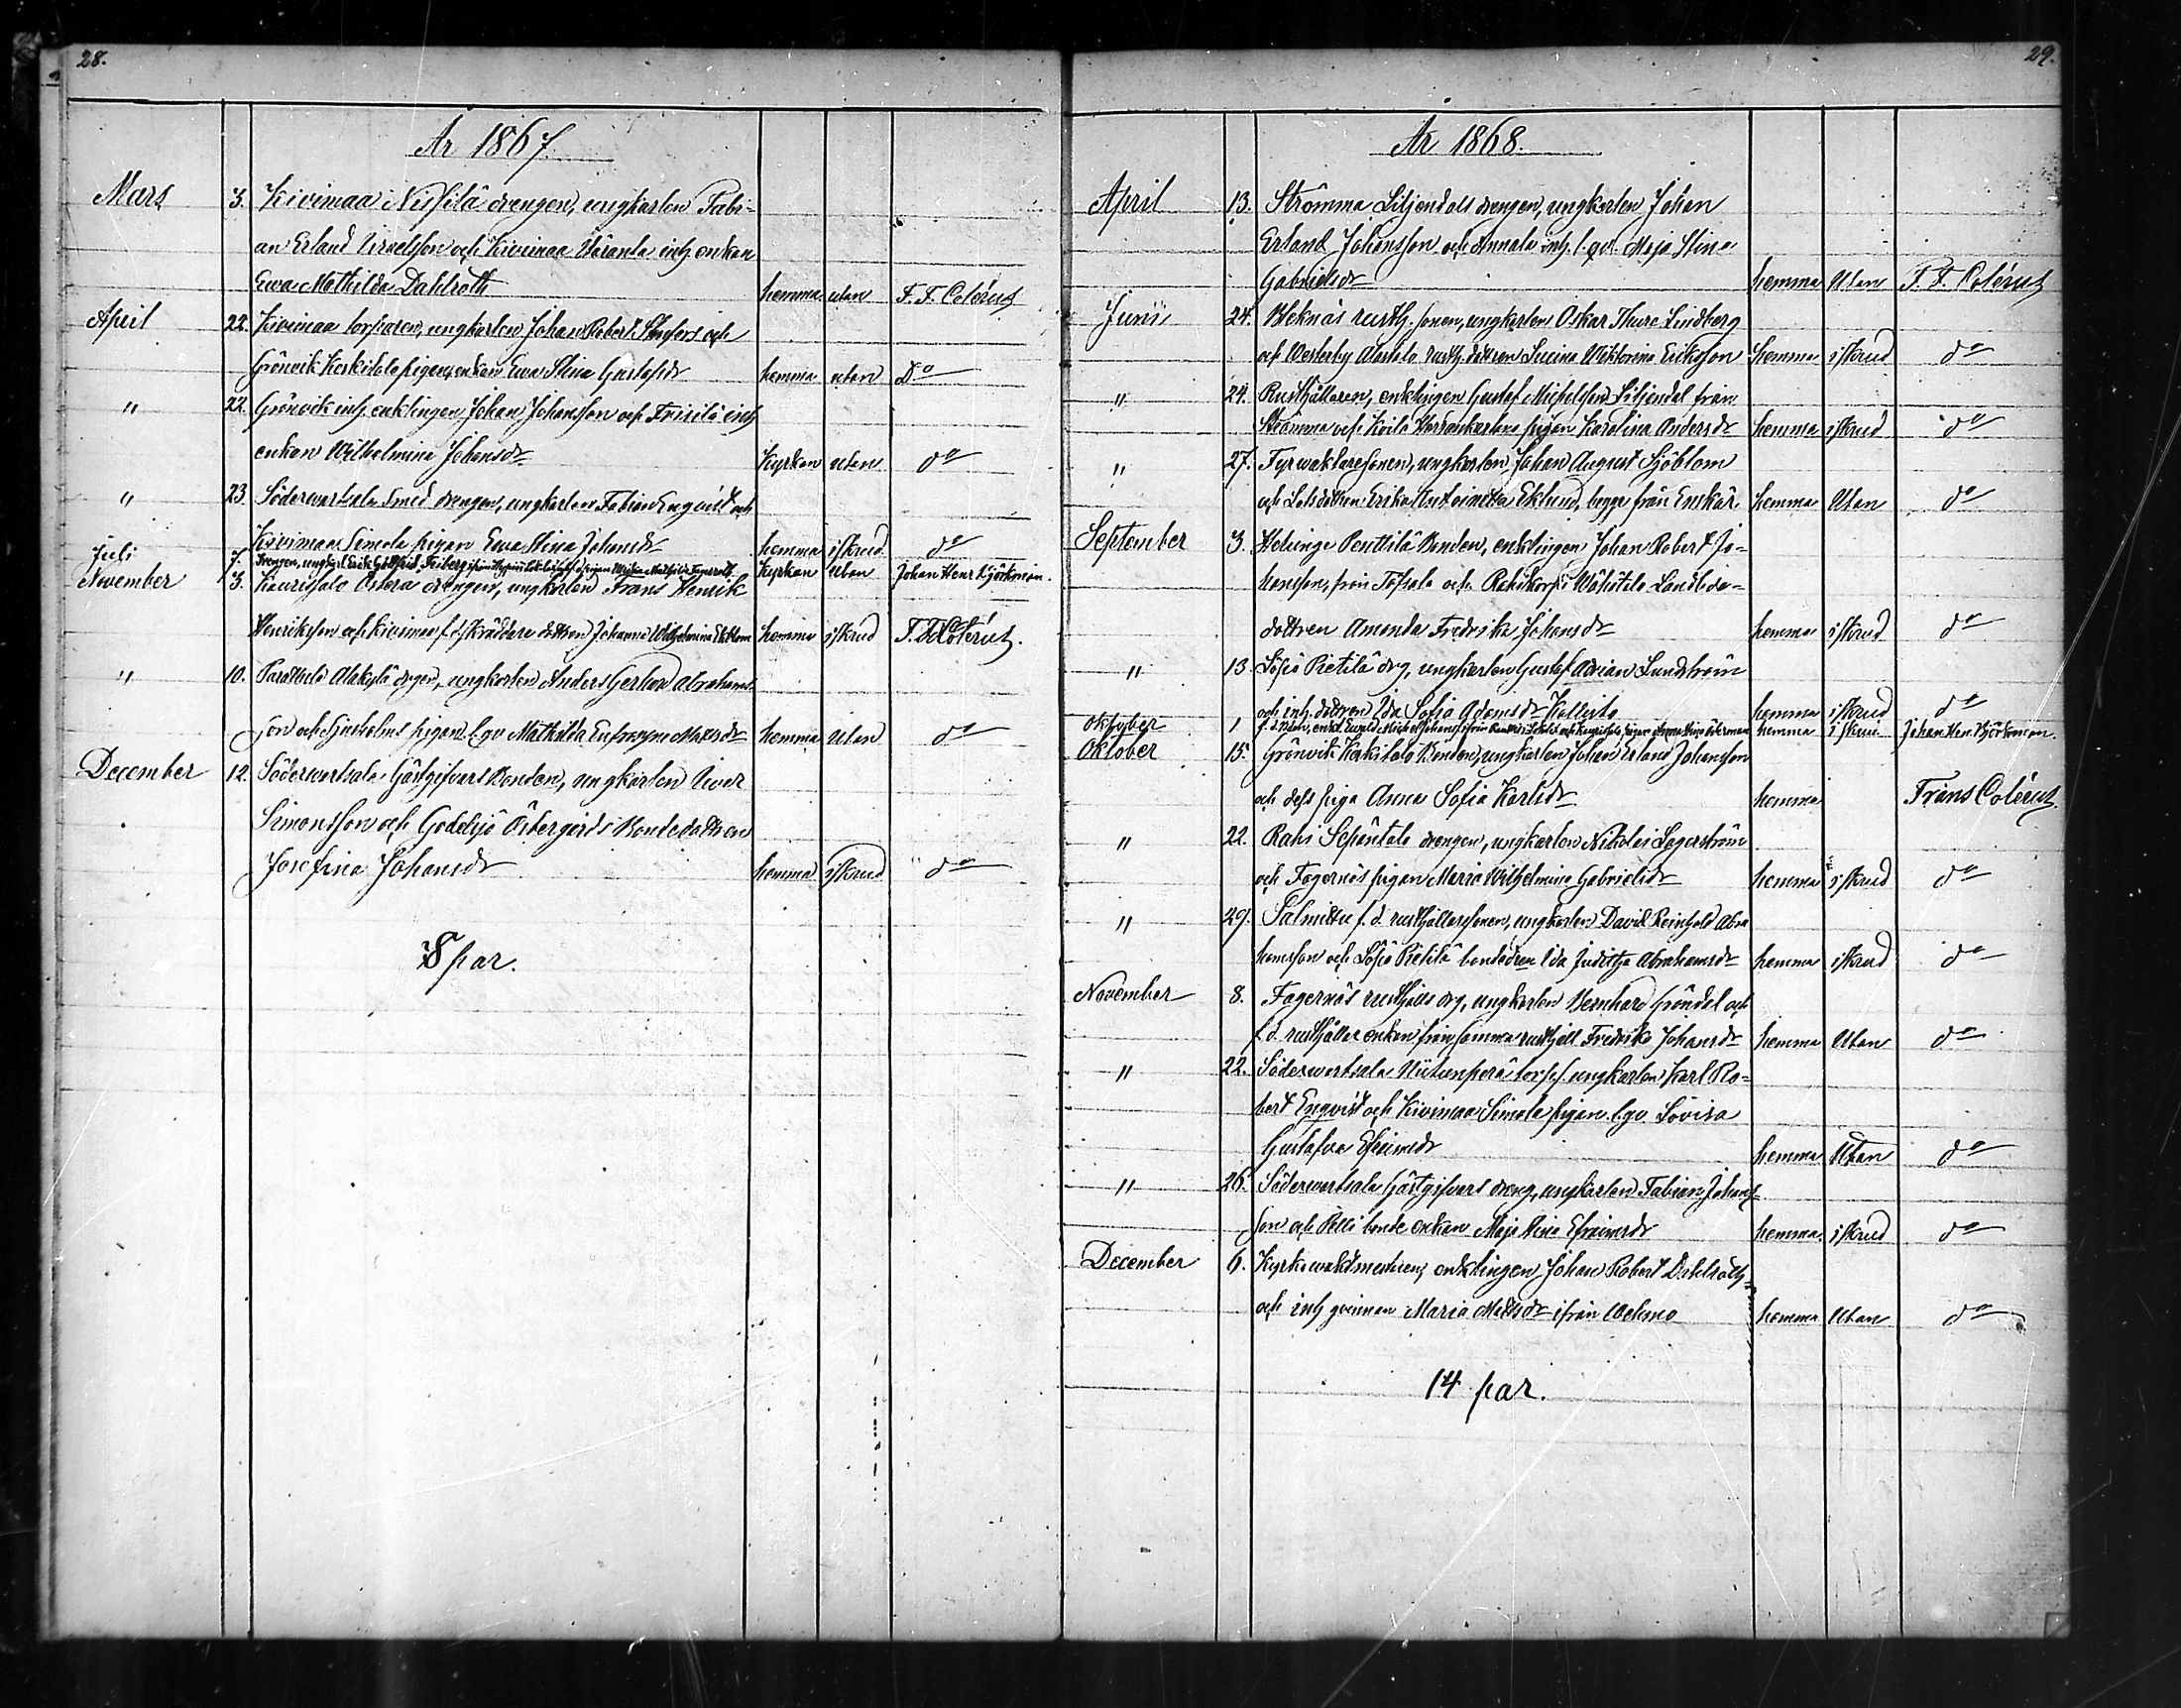 28.
År 1867
Mars 3. Kivimaa Nissilä drengen, ungkarlen Fabi-
an Erland Israelsson och Kivimaa Uaranta inh. enkan
Ewa Mathilda Dahlroth hemma utan F. F. Colérus
April 22. Kivimaa torparen, ungkarlen Johan Robert och
Grönvik Korkitalo pigan, enkan Ewa Stina Gustafsdr hemma utan Do
" 22. Grönvick inh. enklingen Johan Johansson och Frisilä inh
enkan Wilhelmina Johansdr Kyrkan utan do
" 23. Söderwartsala Smed drengen, ungkarlen Fabian Engvist och
Kivimaa Simola pigan Ewa Stina Johansdr hemma i skrud do
Juli 7. Drengen, ungk. Erik Gottfrid Friberg ifrån pigan Maria Mathilda Fagerroth Kyrkan utan Johan Henr. Björkman.
November 3. Kaurissalo Östera drengen, ungkarlen Frans Henrik
Henriksson och Kivimaa f.d. skräddare dottren Johanna Wilhelmina Ekblom hemma i skrud F. F. Colérus.
" 10. Parattula Alakylä drgen, ungkarlen Anders Gerhard Abrahams-
son och Ljusholms pigan l.qv. Mathilda Eufrosyne Matsdr hemma utan do
December 12. Söderwartsala Gästgifvars Bonden, ungkarlen Iwar
Simonsson och Godelsjö Östergårds Bondedottren
Josefina Johansdr hemma i skrud do
8 par.
29.
År 1868.
April 13. Strömma Liljendals drengen, ungkarlen Johan
Erland Johansson och Annala inh. l.qv. Maja Stina
Gabrielsdr hemma Utan F. F. Colérus
Junii 24. Weknäs rusth. sonen, ungkarlen Oskar Thure Lindberg
och Westerby Alastalo rusth. dottren Lucina Wiktorina Eriksson hemma i skrud do
" 24. Rusthållaren, enklingen Gustaf Michelsson Liljendal från
Strömma och Koila pigan Karolina Andersdr hemma i skrud do
" 27. Fyrwaktaresonen, ungkarlen Johan August Sjöblom
och Lotsdottren Erika Antoinetta Eklund, begge från Enskär. hemma Utan do
September 3. Helsinge Penttilä Bonden, enklingen Johan Robert Jo-
hansson, från Töfsala och Rahikorpi Wähätalo Landbo-
dottren Amanda Fredrika Johansdr hemma i skrud do
" 13. Löfsö Pietilä drg, ungkarlen Gustaf Adrian Lundström
och inh. dottren Ida Sofia Adamsdr Kallisto hemma i skrud do
Oktober 1 hemma i skrud Johan Hen. Björkman.
Oktober 15. Grönvik Korkitalo Bonden, ungkarlen Johan Erland Johansson
och dess piga Anna Sofia Karlsdr hemma Frans Colérus.
" 22. Rahi Sepäntalo drengen, ungkarlen Nikolai Lagerström
och Fagernäs pigan Maria Wilhelmina Gabrielsdr hemma i skrud do
" 29. Salmittu f.d. rusthållarsonen, ungkarlen David Reinhold Abra
hamsson och Löfsö Pietilä bondedren Ida Juditha Abrahamsdr hemma i skrud do
November 8. Fagernäs rusthålls drg, ungkarlen Bernhard Gröndal och
f.d. rusthållar enkan från samma rusthåll Fredrika Johansdr hemma Utan do
" 22. Söderwartsala torp. s. ungkarlen Karl Ro-
bert Engvist och Kivimaa Simola pigan l.qv. Lovisa
Gustafva Efraimsdr hemma Utan do
" 26. Söderwartsala Gästgifvars dreng, ungkarlen Fabian Johans-
son och Pelli bonde enkan Maja Stina Efraimsdr hemma i skrud do
December 6. Kyrkowaktmästaren, enklingen Johan Robert Dahlroth
och inh. qvinnan Maria Matsdr ifrån Wehmo hemma Utan do
14 par.